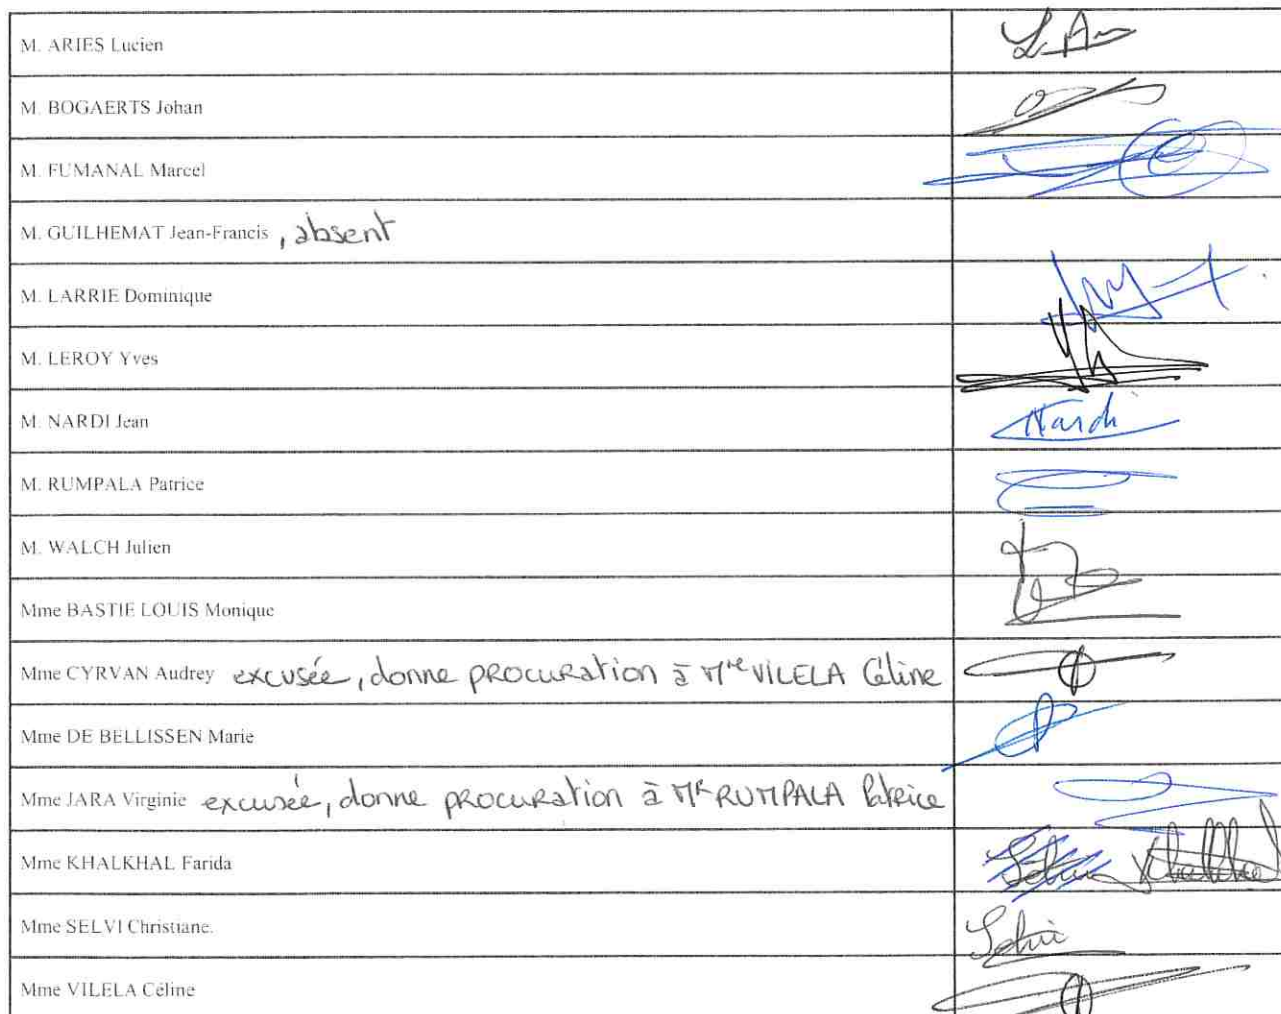 M. ARIES Lucien
M. BOGAERTS Johan
M. FUMANAL Marcel
M. GUILHEMAT Jean-Francis , absent
M. LARRIE Dominique
M. LEROY Yves
M. NARDI Jean Nardi
M. RUMPALA Patrice
M. WALCH Julien
Mme BASTIE LOUIS Monique
Mme CYRVAN Audrey excusée, donne procuration à Mme VILELA Céline
Mme DE BELLISSEN Marie
Mme JARA Virginie excusée, donne procuration à MR RUMPALA Patrice
Mme KHALKHAL Farida
Mme SELVI Christiane. Selvi
Mme VILELA Céline